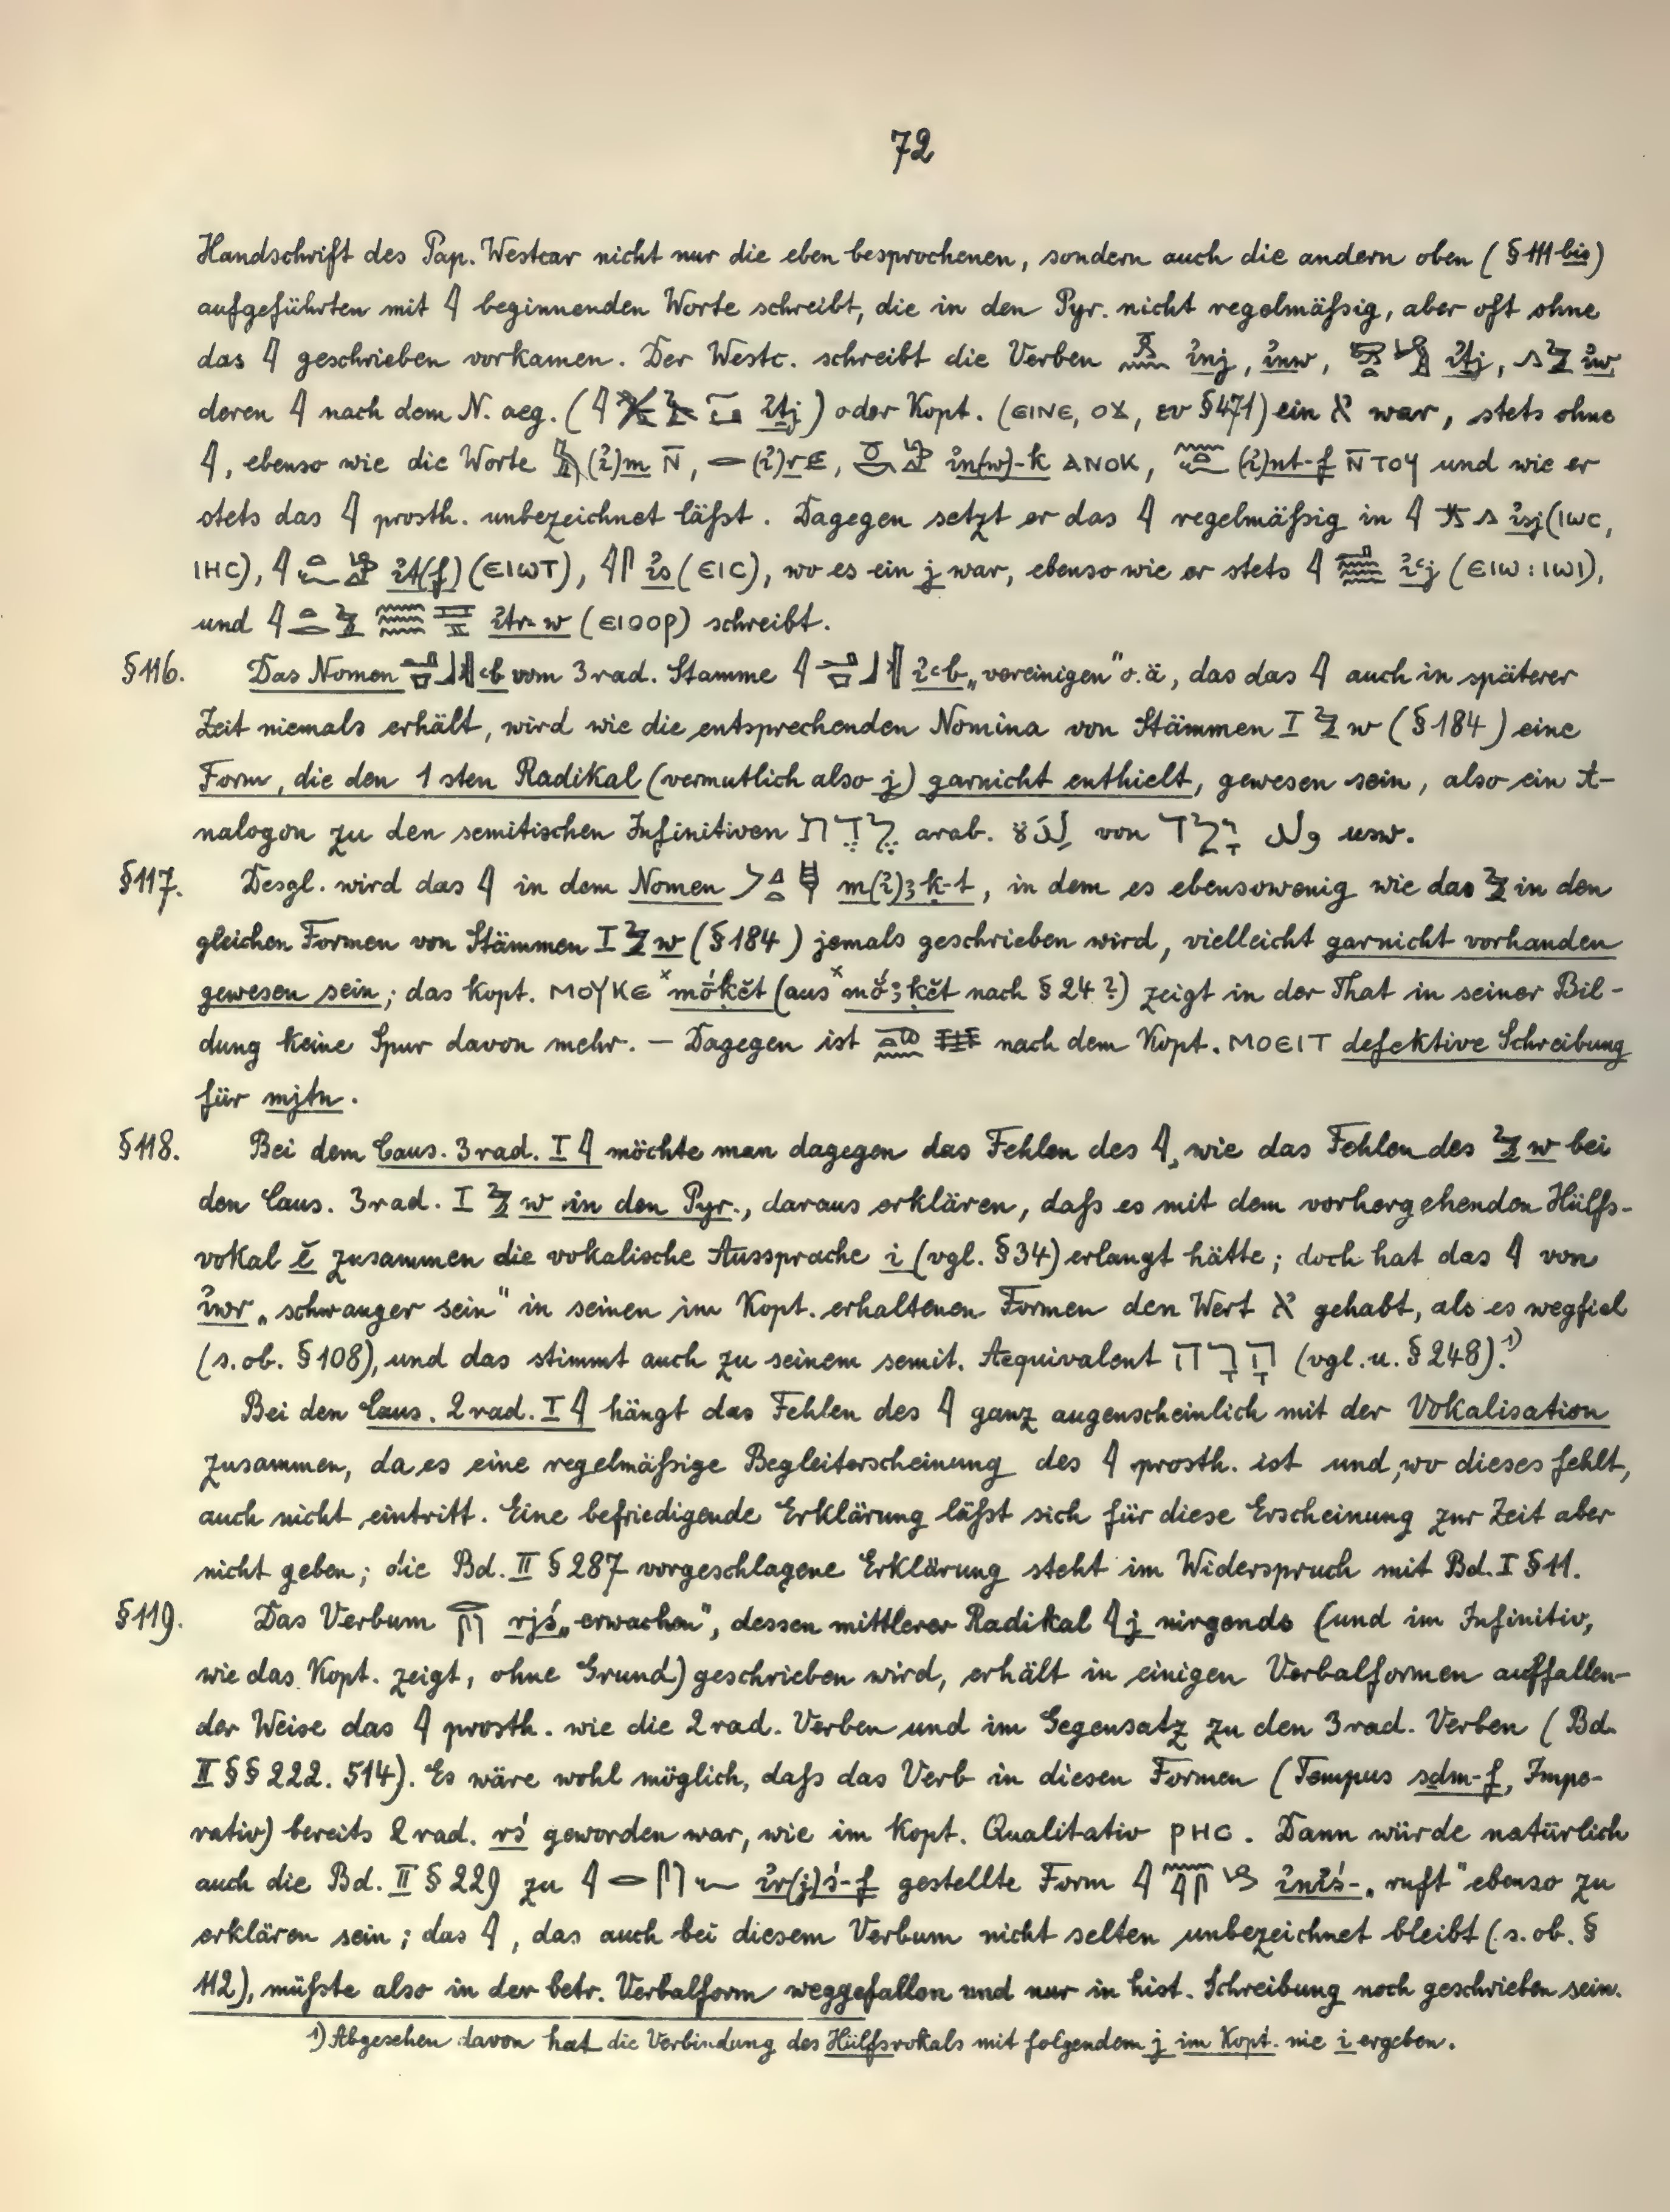 72
Handschrift des Pap. Westcar nicht nur die eben besprochenen, sondern auch die andern oben (§ 111 bis)
aufgeführten mit 𓇋 beginnenden Worte schreibt, die in den Pyr. nicht regelmäßig, aber oft ohne
das 𓇋 geschrieben vorkamen. Der Westc. schreibt die Verben ı͗nj, ı͗nw, ı͗ṯj, ı͗w
deren 𓇋 nach dem N. aeg. (𓇋 ı͗ṯj) oder Kopt. (ⲉⲓⲛⲉ, ⲟϫ, ⲉⲩ § 471) ein א war, stets ohne
𓇋, ebenso wie die Worte (ı͗)m ⲛ̄, 𓂋 (ı͗)r ⲉ, ı͗n(w)-k ⲁⲛⲟⲕ, (ı͗)nt-f ⲛ̄ⲧⲟϥ und wie er
stets das 𓇋 prosth. unbezeichnet läßt. Dagegen setzt er das 𓇋 regelmäßig in 𓇋 ı͗sj (ⲓⲱⲥ,
ⲓⲏⲥ), 𓇋 ı͗t(f) (ⲉⲓⲱⲧ), 𓇋𓋴 ı͗s (ⲉⲓⲥ), wo es ein j war, ebenso wie er stets 𓇋 ı͗ꜥj (ⲉⲓⲱ : ⲓⲱⲓ),
und 𓇋 ı͗tr-w (ⲉⲓⲟⲟⲣ) schreibt.
§ 116. Das Nomen ꜥb vom 3 rad. Stamme 𓇋 ı͗ꜥb „vereinigen“ o. ä, das das 𓇋 auch in späterer
Zeit niemals erhält, wird wie die entsprechenden Nomina von Stämmen I 𓅱 w (§ 184) eine
Form, die den 1 sten Radikal (vermutlich also j) garnicht enthielt, gewesen sein, also ein A-
nalogon zu den semitischen Infinitiven לֶדֶת arab. لِدَةٌ von יָלַד ولد usw.
§ 117. Desgl. wird das 𓇋 in dem Nomen m(ı͗)ꜣḳ-t, in dem es ebensowenig wie das 𓅱 in den
gleichen Formen von Stämmen I 𓅱 w (§ 184) jemals geschrieben wird, vielleicht garnicht vorhanden
gewesen sein; das kopt. ⲙⲟⲩⲕⲉ ˣmóḳĕt (aus ˣmóꜣḳĕt nach § 24 ?) zeigt in der That in seiner Bil-
dung keine Spur davon mehr. — Dagegen ist nach dem Kopt. ⲙⲟⲉⲓⲧ defektive Schreibung
für mjtn.
§ 118. Bei dem Caus. 3 rad. I 𓇋 möchte man dagegen das Fehlen des 𓇋, wie das Fehlen des 𓅱 w bei
den Caus. 3 rad. I 𓅱 w in den Pyr., daraus erklären, daß es mit dem vorhergehenden Hülfs-
vokal ĕ zusammen die vokalische Aussprache i (vgl. § 34) erlangt hätte; doch hat das 𓇋 von
ı͗wr „schwanger sein“ in seinen im Kopt. erhaltenen Formen den Wert א gehabt, als es wegfiel
(s. ob. § 108), und das stimmt auch zu seinem semit. Aequivalent הָרָה (vgl. u. § 248).¹)
Bei den Caus. 2 rad. I 𓇋 hängt das Fehlen des 𓇋 ganz augenscheinlich mit der Vokalisation
zusammen, da es eine regelmäßige Begleiterscheinung des 𓇋 prosth. ist und, wo dieses fehlt,
auch nicht eintritt. Eine befriedigende Erklärung läßt sich für diese Erscheinung zur Zeit aber
nicht geben; die Bd. II § 287 vorgeschlagene Erklärung steht im Widerspruch mit Bd. I § 11.
§ 119. Das Verbum rjś „erwachen“, dessen mittlerer Radikal 𓇋 j nirgends (und im Infinitiv,
wie das Kopt. zeigt, ohne Grund) geschrieben wird, erhält in einigen Verbalformen auffallen-
der Weise das 𓇋 prosth. wie die 2 rad. Verben und im Gegensatz zu den 3 rad. Verben (Bd.
II §§ 222. 514). Es wäre wohl möglich, daß das Verb in diesen Formen (Tempus sḏm-f, Impe-
rativ) bereits 2 rad. rś geworden war, wie im kopt. Qualitativ ⲣⲏⲥ. Dann würde natürlich
auch die Bd. II § 229 zu 𓇋𓂋𓋴𓆑 ı͗r(j)ś-f gestellte Form 𓇋𓈖𓇋𓋴 ı͗nı͗ś- „ruft“ ebenso zu
erklären sein; das 𓇋, das auch bei diesem Verbum nicht selten unbezeichnet bleibt (s. ob. §
112), müßte also in der betr. Verbalform weggefallen und nur in hist. Schreibung noch geschrieben sein.
¹) Abgesehen davon hat die Verbindung des Hülfsvokals mit folgendem j im Kopt. nie i ergeben.